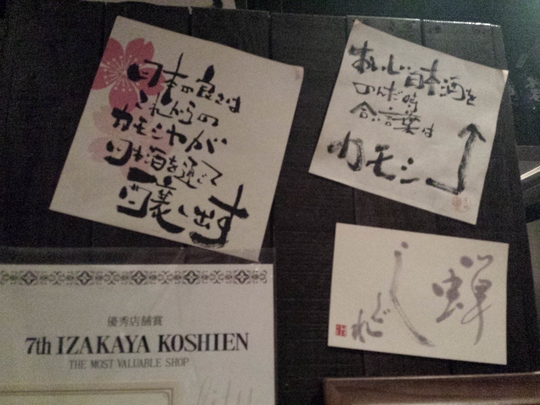 日本の良さは
これからの
カモシヤが
日本酒を通して
醸し出す
おいしい日本酒を
のんだ時
合言葉は
カモシ
蝉
しぐれ
優秀店舗賞
7th IZAKAYA KOSHIEN
THE MOST VALUABLE SHOP